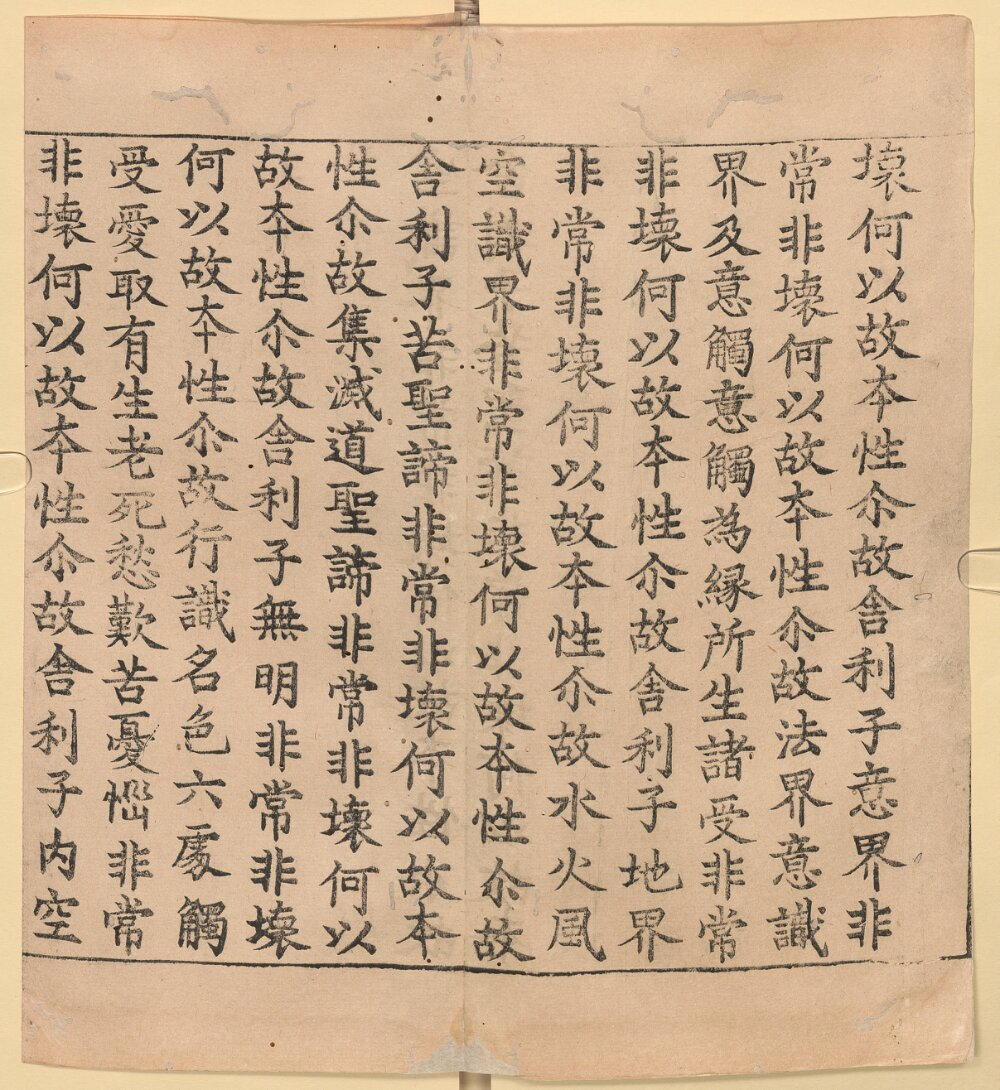 壞何以故本性尒故舎利子意界非
常非壞何以故本性尒故法界意識
界及意觸意觸為縁所生諸受非常
非壞何以故本性尒故舎利子地界
非常非壞何以故本性尒故水火風
空識界非常非壞何以故本性尒故
舎利子苦聖諦非常非壞何以故本
性尒故集滅道聖諦非常非壞何以
故本性尒故舎利子無明非常非壞
何以故本性尒故行識名色六處觸
受愛取有生老死愁歎苦憂惱非常
非壞何以故本性尒故舎利子内空